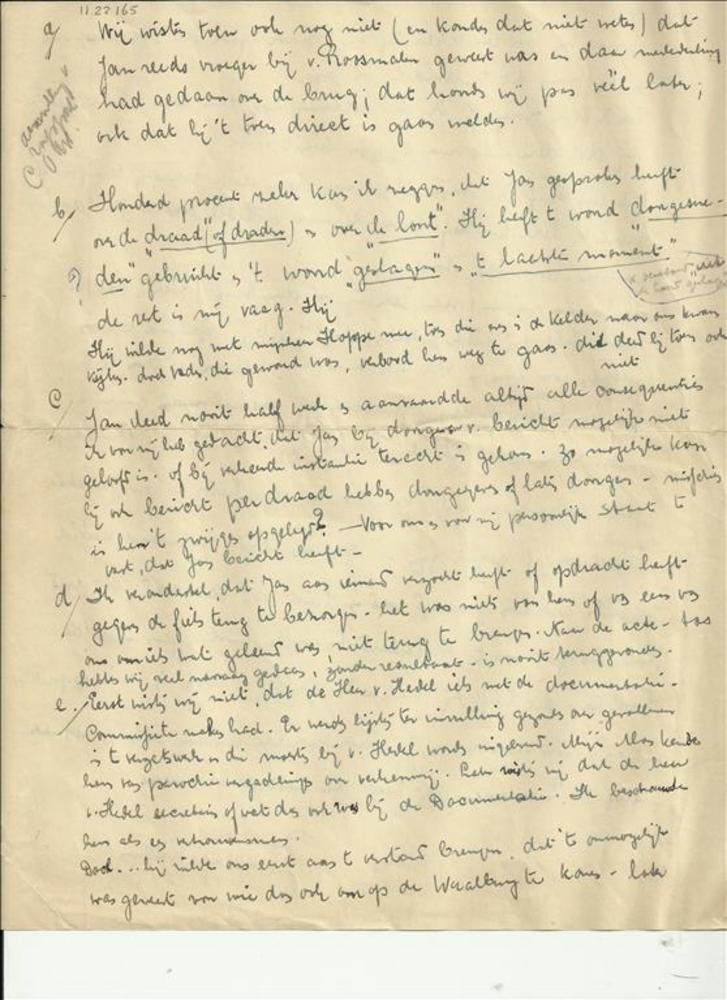 11.22165
a/ Wij wisten toen ook nog niet (en konden dat niet weten) dat
Jan reeds vroeger bij v. Roosmalen geweest was en daar mededeling
had gedaan over de brug; dat hoorde wij pas véél later;
ook dat hij 't toen direct is gaan melden.
b/ Honderd procent zeker kan ik zeggen, dat Jan gesproken heeft
over de "draad" (of draden) en over de lont". Hij heeft 't woord doorgesne-
den" gebruikt en 't woord "geslagen" en "t laatste moment."
?
de rest is mij vaag. Hij
Hij wilde nog met mijnheer Hoppe mee, toen die eens in de kelder naar ons kwam
kijken. doch vader, die gewond was, verbood hem weg te gaan. dit deed hij toen ook
niet
c/ Jan deed nooit half werk en aanvaardde altijd alle consequenties
ik voor mij heb gedacht, dat Jan bij doorgeven v. bericht mogelijk niet
geloofd is. of bij verkeerde instantie terecht is gekomen. Zo mogelijk kan
hij ook bericht per draad hebben doorgegeven of laten doorgeven - misschien
is hem 't zwijgen opgelegd? - Voor ons en voor mij persoonlijk staat 't
vast, dat Jan bericht heeft -
d/ Ik veronderstel, dat Jan aan iemand verzocht heeft of opdracht heeft
gegeven de fiets terug te bezorgen. het was niets voor hem of voor een van
ons om iets wat geleend was, niet terug te brengen. Naar de acte-tas
hebben wij veel navraag gedaan, zonder resultaat - is nooit teruggevonden.
e./ Eerst wisten wij niet, dat de Heer v. Hedel iets met de documentatie-
Commissie te maken had. Er werden lijsten ter invulling gezonden over gevallenen
in 't verzet en die moesten bij v. Hedel worden ingeleverd. Mijn Man kende
hem van parochie vergaderingen over verkenning. Later wisten wij dat de heer
v. Hedel secretaris of wat dan ook was bij de Documentatie. Ik beschouwde
hem als een vertrouwensman.
Doch... hij wilde ons eerst aan 't verstand brengen, dat 't onmogelijk
was geweest voor wie dan ook om op de Waalbrug te komen - later